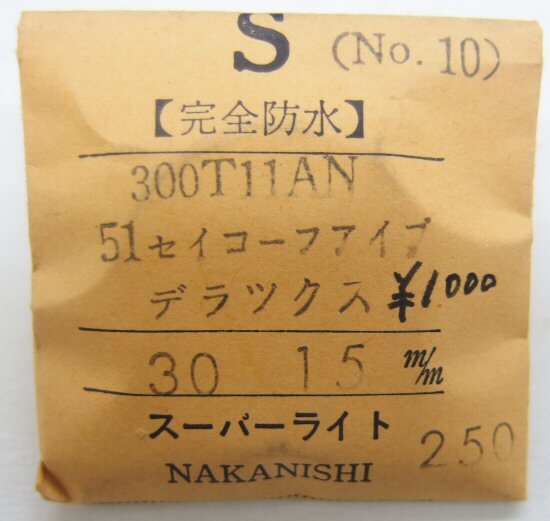 S (No. 10)
【完全防水】
300T11AN
51セイコーファイブ
デラックス ¥1000
30 15 m/m
スーパーライト
250
NAKANISHI